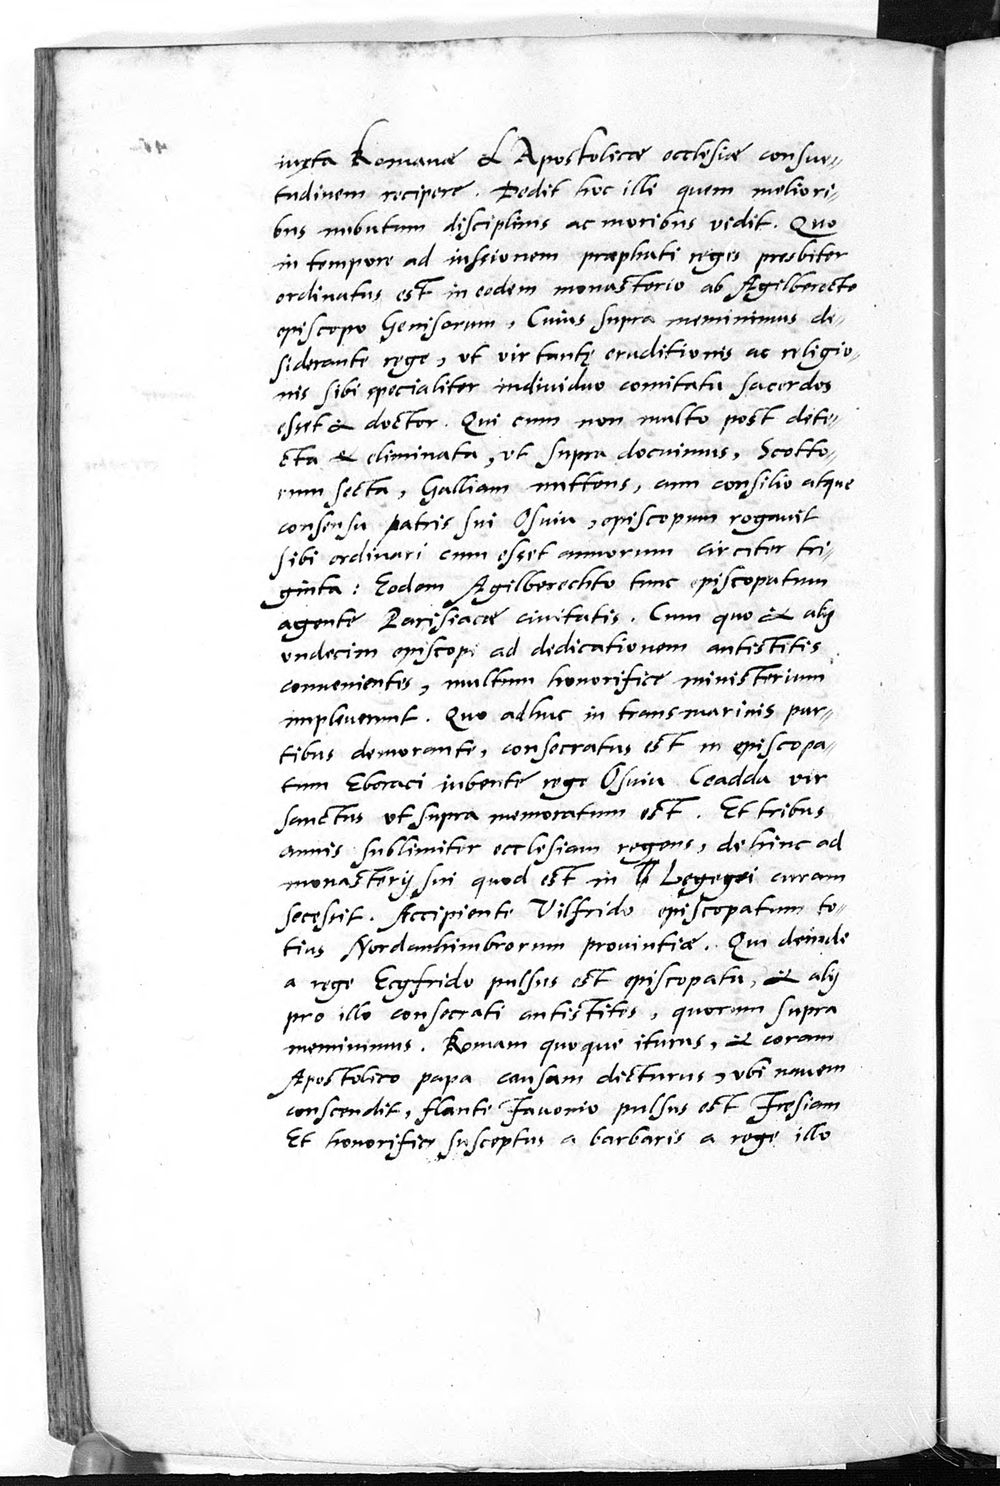 iuxta Romanæ & Apostolicæ ecclesiæ consue-
tudinem recipere. Dedit hoc illi quem meliori-
bus imbutum disciplinis ac moribus vidit. Quo
in tempore ad iussionem præphati regis presbiter
ordinatus est in eodem monasterio ab Agilberecto
episcopo Genisorum, Cuius supra meminimus de-
siderante rege, ut vir tantę eruditionis ac religio-
nis sibi specialiter individuo comitatu sacerdos
esset & doctor. Qui cum non multo post dete-
cta & eliminata, ut supra docuimus, Scotto-
rum secta, Galliam mittens, cum consilio atque
consensu patris sui Osuiu, episcopum rogavit
sibi ordinari cum esset annorum circiter tri-
ginta: Eodem Agilberechto tunc episcopatum
agente Parisiacæ civitatis. Cum quo & alij
undecim episcopi ad dedicationem antistitis
convenientes, multum honorifice ministerium
impleverunt. Quo adhuc in transmarinis par-
tibus demorante, consecratus est in episcopa-
tum Eboraci iubente rege Osuiu Ceadda vir
sanctus ut supra memoratum est. Et tribus
annis sublimiter ecclesiam regens, dehinc ad
monasterij sui quod est in Lęgęgei curam
secessit. Accipiente Vilfrido episcopatum to-
tius Nordanhimbrorum provintiæ. Qui deinde
a rege Ecgfrido pulsus est episcopatu, & alij
pro illo consecrati antistites, quorum supra
meminimus. Romam quoque iturus, & coram
Apostolico papa causam dicturus, ubi navem
conscendit, flante Favonio pulsus est Fresiam
Et honorifice susceptus a barbaris a rege illo